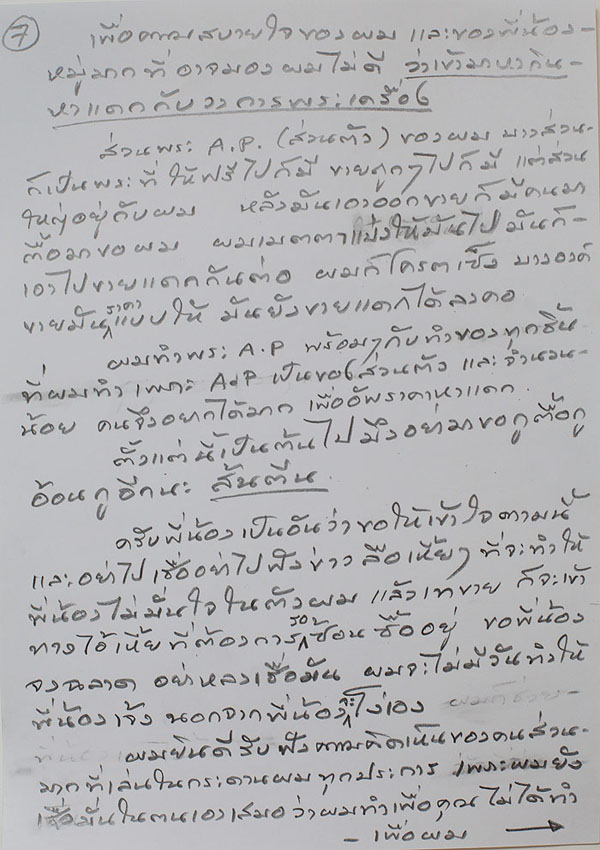 7
เพื่อความสบายใจของผม และของพี่น้อง-
หมู่มากที่อาจมองผมไม่ดี ว่าเข้ามาหากิน-
หาแดกกับวงการพระเครื่อง
ส่วนพระ A.P. (ส่วนตัว) ของผม บางส่วน-
ก็เป็นพระที่ให้ฟรีไปก็มี ขายถูกๆไปก็มี แต่ส่วน
ใหญ่อยู่กับผม หลังมันเอาออกขายก็มีคนมา
ตื้อมาขอผม ผมเมตตาแบ่งให้มันไป มันก็-
เอาไปขายแดกกันต่อ ผมก็โครตเซ็ง บางองค์
ขายมันราคาแบบให้ มันยังขายแดกได้ลงคอ
ผมทำพระ A.P พร้อมๆกับทำของทุกชิ้น
ที่ผมทำ เพาะ A.P เป็นของส่วนตัว และจำนวน-
น้อย คนจึงอยากได้มาก เพื่ออัพราคาหาแดก.
ตั้งแต่นี้เป็นต้นไป มึงอย่ามาขอกูตื้อกู
อ้อนกูอีกนะ ส้นตีน.
ครับพี่น้อง เป็นอันว่าขอให้เข้าใจตามนี้
และอย่าไปเชื่ออย่าไปฟังข่าวลือเหี้ยๆ ที่จะทำให้
พี่น้องไม่มั่นใจในตัวผม แล้วเทขาย ก็จะเข้า
ทางไอ้เหี้ยที่ต้องการรอช้อนซื้ออยู่ ขอพี่น้อง
จงฉลาด อย่าหลงเชื่อมัน ผมจะไม่มีวันทำให้
พี่น้องเจ้ง นอกจากพี่น้องจะโง่เอง
ผมยินดีรับฟังความคิดเห็นของคนส่วน-
มากที่เล่นในกระดานผมทุกประการ เพราะผมยัง
เชื่อมั่นในตนเองเสมอว่าผมทำเพื่อคุณ ไม่ได้ทำ
- เพื่อผม →